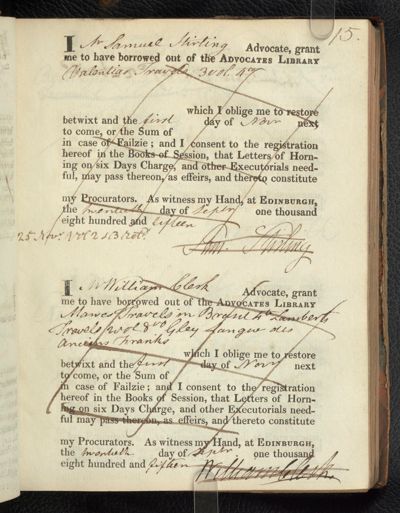 15.
I Mr Samuel Stirling Advocate, grant
me to have borrowed out of the ADVOCATES LIBRARY
Valentias Travels 3 vol. 4to
which I oblige me to restore
betwixt and the first day of Novr next
to come, or the Sum of
in case of Failzie ; and I consent to the registration
hereof in the Books of Session, that Letters of Horn-
ing on six Days Charge, and other Executorials need-
ful, may pass thereon, as effeirs, and thereto constitute
my Procurators. As witness my Hand, at EDINBURGH,
the day of Septr one thousand
eight hundred and fifteen
25 Novr. Vol 2 & 3 retd.
Saml. Stirling
I Mr William Clerk Advocate, grant
me to have borrowed out of the ADVOCATES LIBRARY
Mawes Travels in Brasil 4to Lamberts
Travels vol 8vo Gley Langue des
Anciens Franks
which I oblige me to restore
betwixt and the first day of Novr next
to come, or the Sum of
in case of Failzie ; and I consent to the registration
hereof in the Books of Session, that Letters of Horn-
ing on six Days Charge, and other Executorials need-
ful may pass thereon, as effeirs, and thereto constitute
my Procurators. As witness my Hand, at EDINBURGH,
the day of Septr one thousand
eight hundred and fifteen
William Clerk